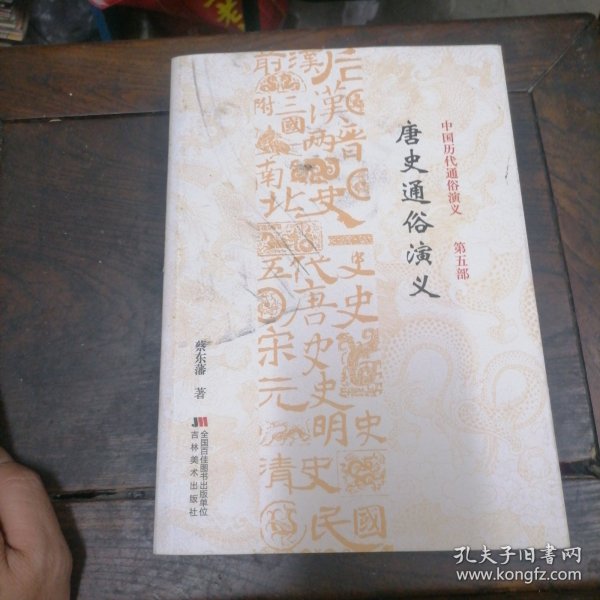 中国历代通俗演义 第五部
唐史通俗演义
后晋史
汉两史
三國
前
附
南北
史
代唐史史明史民
五
宋元
清
史
國
蔡东藩 著
JM
全国百佳图书出版单位
吉林美术出版社
孔夫子旧书网
www.kongfz.com